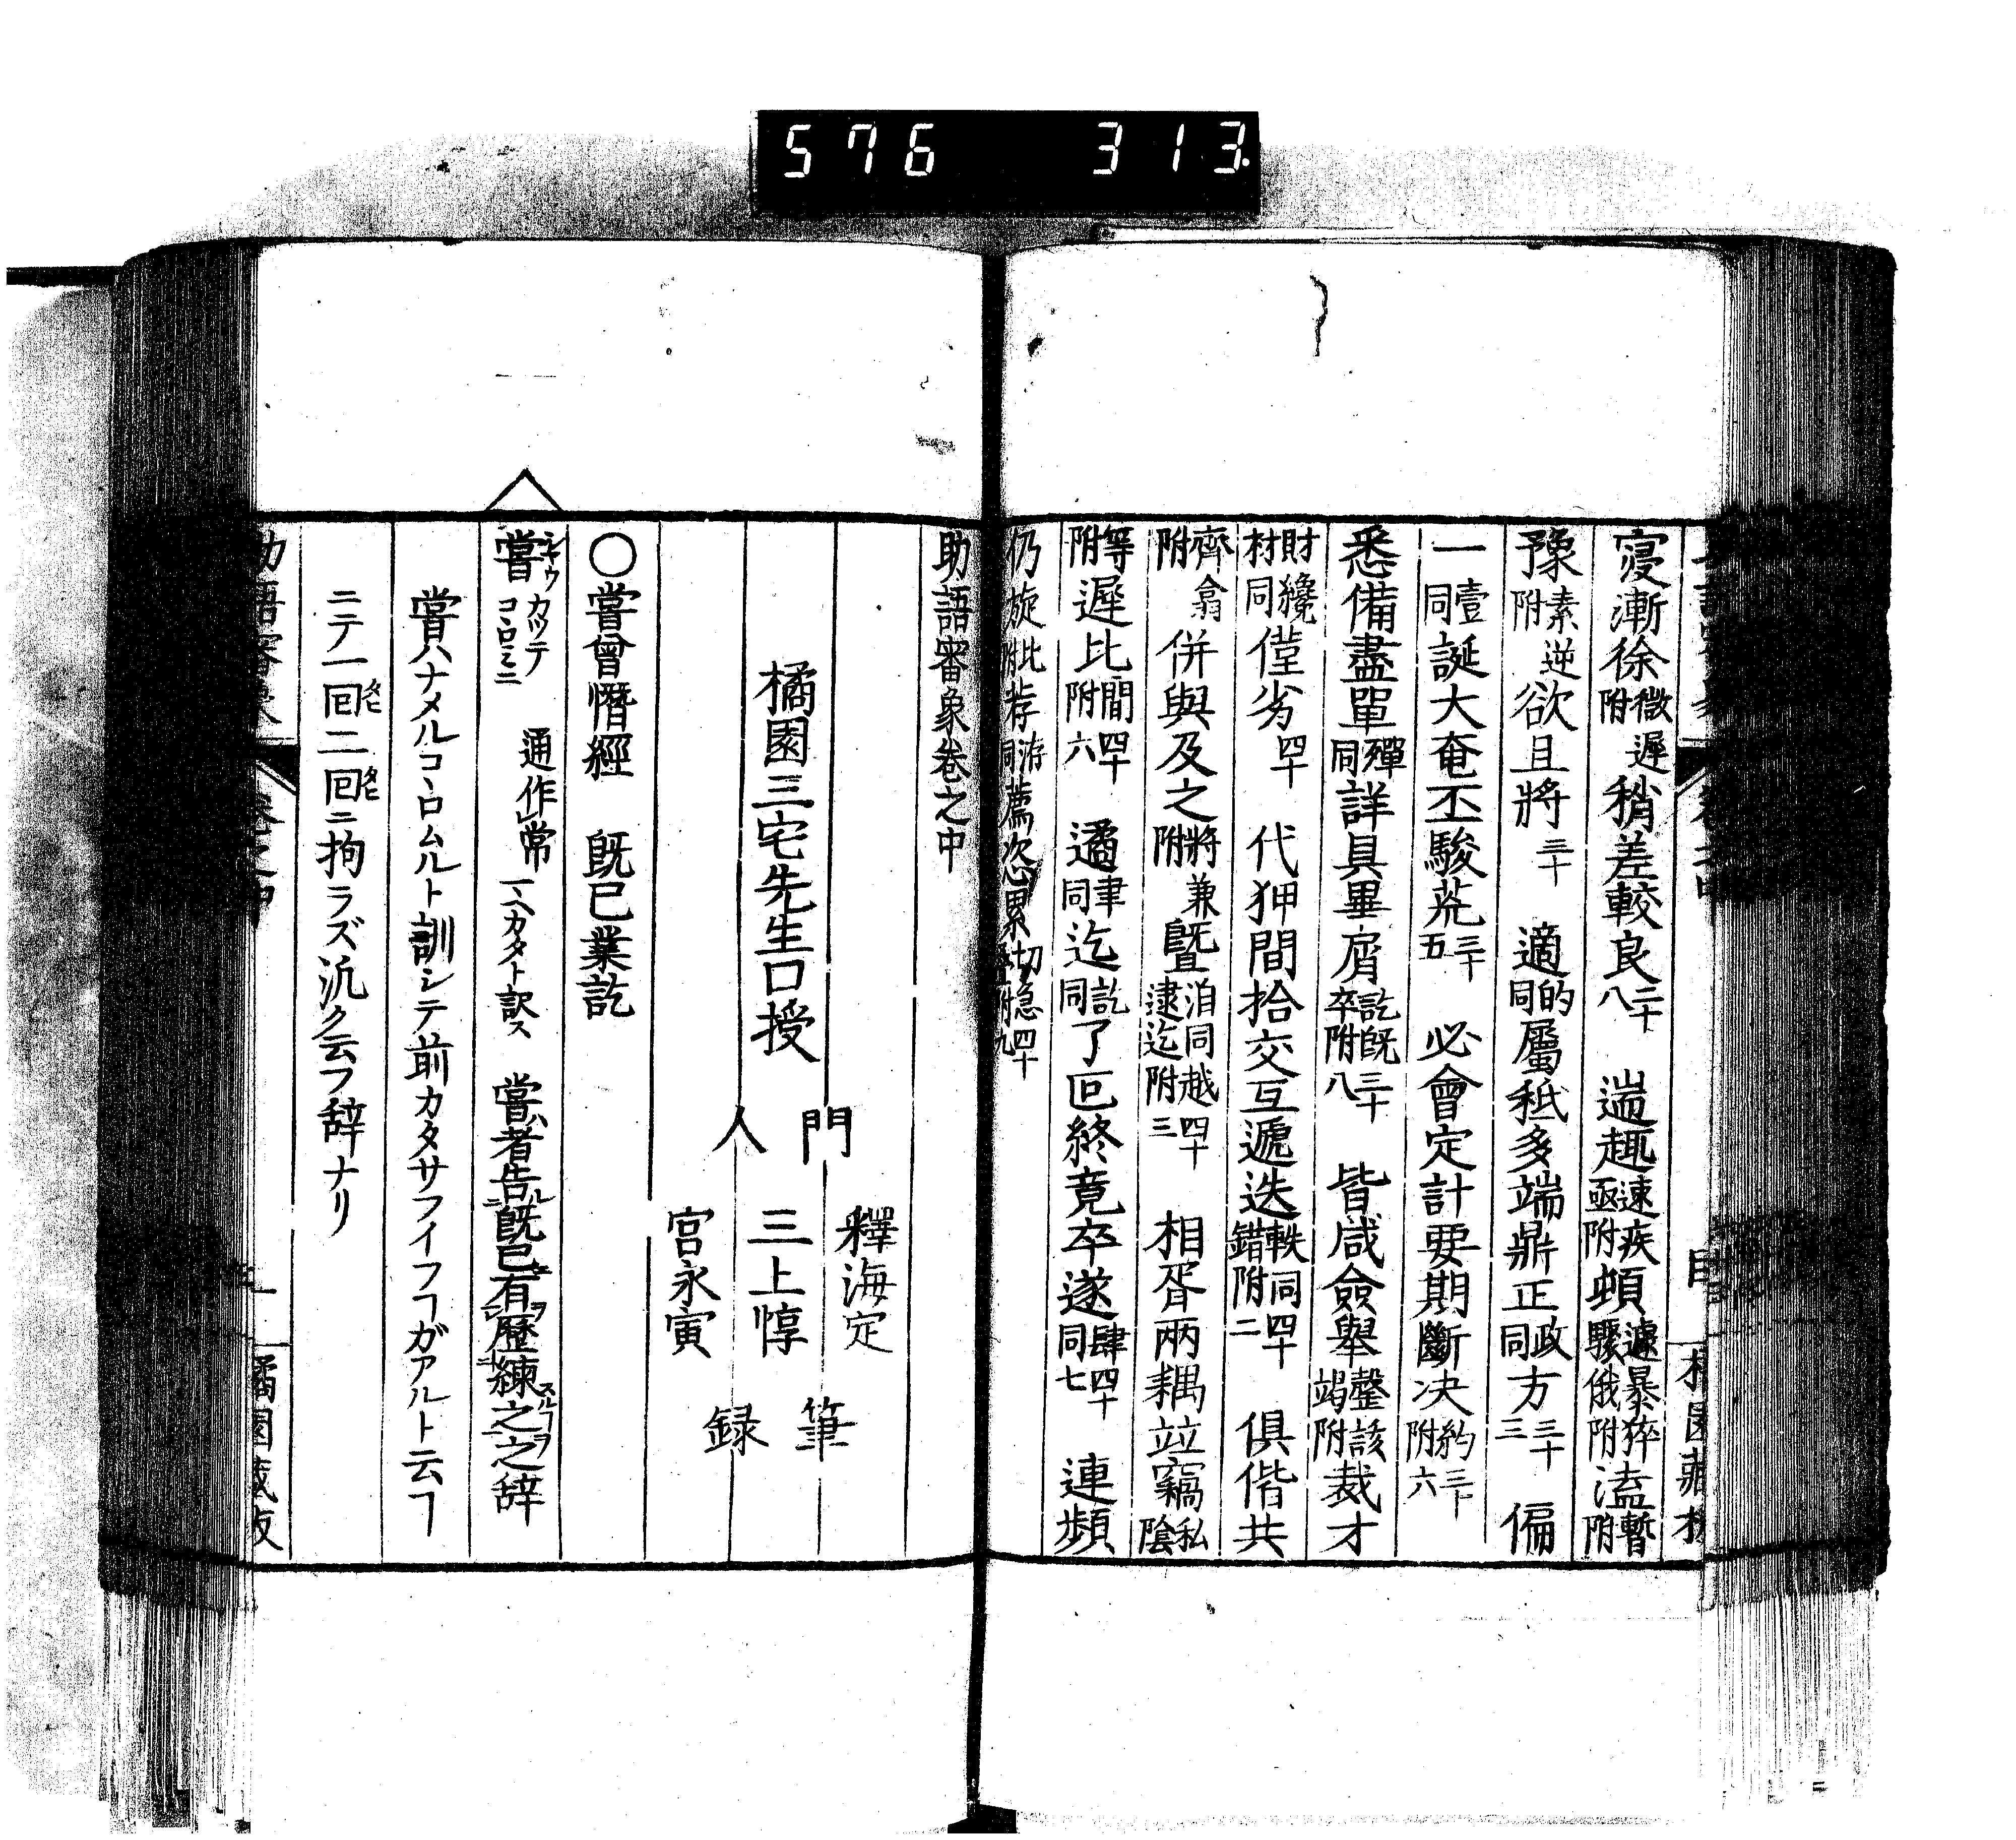 576 313.
寖漸徐微遲附稍差較良二十八 遄趣速疾亟附頓遽暴猝驟俄附溘暫附
豫素逆附欲且將三十 適的同屬秖多端鼎正政同方三十三 偏
一壹同誕大奄丕駿荒三十五 必會定計要期斷决約附三十六
悉備盡單殫同詳具畢屑訖既卒附三十八 皆咸僉舉罄該竭附裁才
財纔材同僅劣四十 代狎間拾交互遞迭軼同錯附四十二 俱偕共
齊翕附併與及之將兼附曁洎同越逮迄附四十三 相胥兩耦竝竊私陰
等附遲比間附四十六 遹聿同迄訖同了叵終竟卒遂肆同四十七 連頻
仍旋比附荐洊同薦次累切急附四十九
助語審象卷之中
橘園三宅先生口授
門人
釋海定
三上惇
宮永寅
筆録
〇嘗曾憯經 既已業訖
嘗 シヤウ カツテ コヽロミニ 通作常 一ヘカタト訳ス 嘗者告既已有歷練之之辞
嘗ハナメルコヽロムルト訓シテ前カタサフイフヿガアルト云ヿ
ニテ一回二回ニ拘ラズ汎ク云フ辞ナリ
助語審象 卷之中 一 橘園藏板